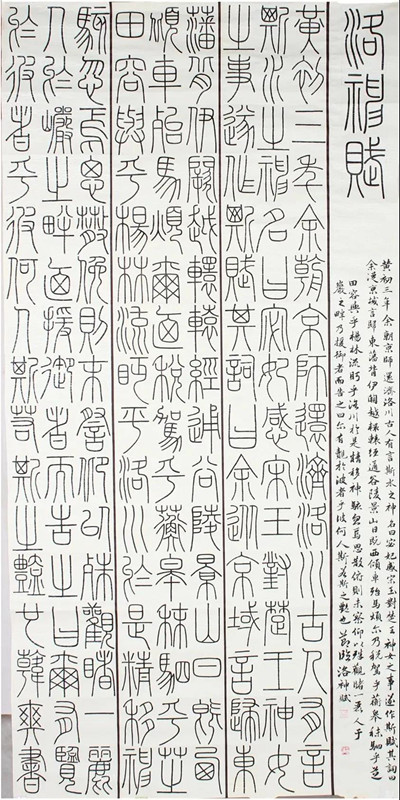 洛神賦
黃初三年余朝京師還濟洛川古人有言斯水之神名曰宓妃感宋玉對楚王神女之事遂作斯賦其詞曰
余從京域言歸東藩背伊闕越轘轅經通谷陵景山日既西傾車殆馬煩爾乃稅駕乎蘅皋秣駟乎芝
田容與乎楊林流眄乎洛川於是精移神駭忽焉思散俯則未察仰以殊觀睹一麗人于
巖之畔乃援御者而告之曰爾有覿於彼者乎彼何人斯若斯之艷也 節臨洛神賦
黃初三年余朝京師還濟洛川古人有言
斯水之神名曰宓妃感宋王對楚王神女
之事遂作斯賦其詞曰余從京域言歸東
藩背伊闕越轘轅經通谷陵景山日既西
傾車殆馬煩爾迺稅駕乎蘅皋秣駟乎芝
田容與乎楊林流眄乎洛川於是精移神
駭忽焉思散俯則未察仰以殊觀睹一麗
人於巖之畔迺援御者而告之曰爾有覽
於彼者乎彼何人斯若斯之豔也韓爽書